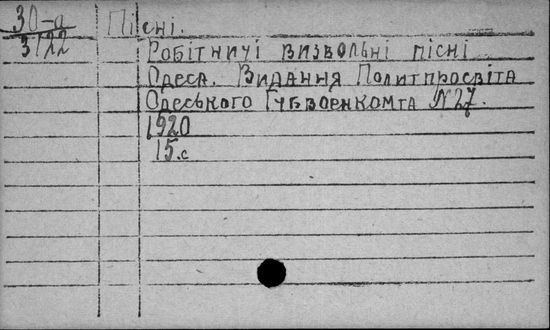 30-а
3122
Пісні.
Робітничі визвольні пісні
Одеса. Видання Политпросвіта
Одеського Губвоенкомта N27.
1920
15.с